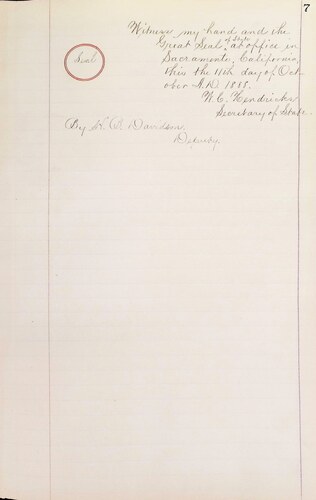 7
Witness my hand and the
Great Seal of State at office in
Seal
Sacramento, California,
this the 11th day of Oct-
ober A.D. 1888.
W. C. Hendricks
Secretary of State
By H. B. Davidson
Deputy.